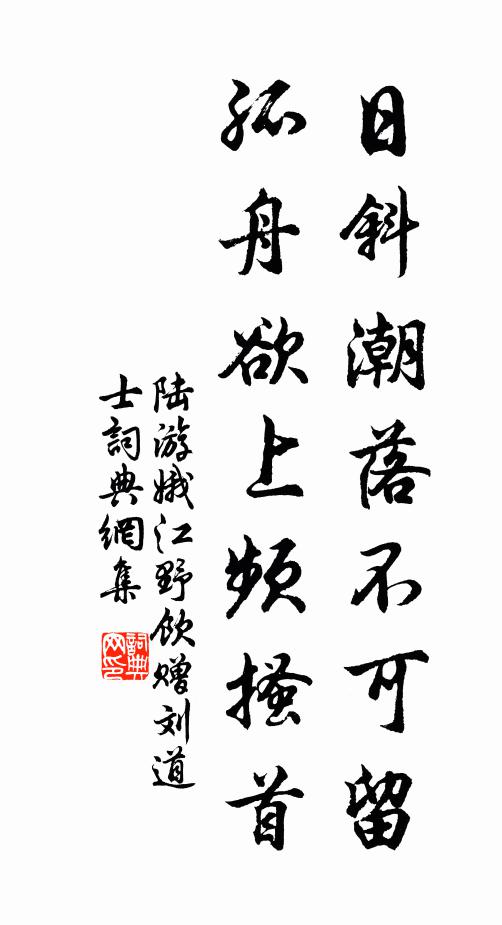 日斜潮落不可留
孤舟欲上频搔首
陆游娥江野饮赠刘道
士詞典網集
詞典
网印